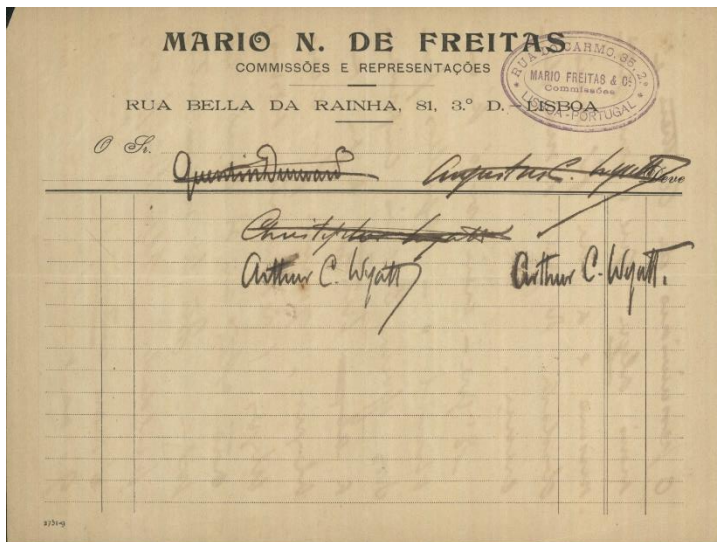 MARIO N. DE FREITAS
COMMISSÕES E REPRESENTAÇÕES
RUA BELLA DA RAINHA, 81, 3.º D. - LISBOA
RUA DO CARMO, 35, 2.º
MARIO FREITAS & C.ª
Commissões
* LISBOA - PORTUGAL *
O Sr.
Quentin Durward Augustus C. Wyatt Deve
Christopher Wyatt
Arthur C. Wyatt Arthur C. Wyatt.